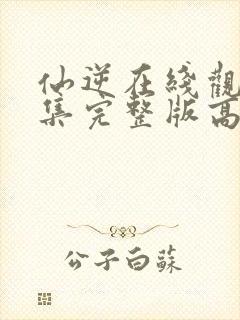 仙逆在綫觀
集完整版高
公子白蘇